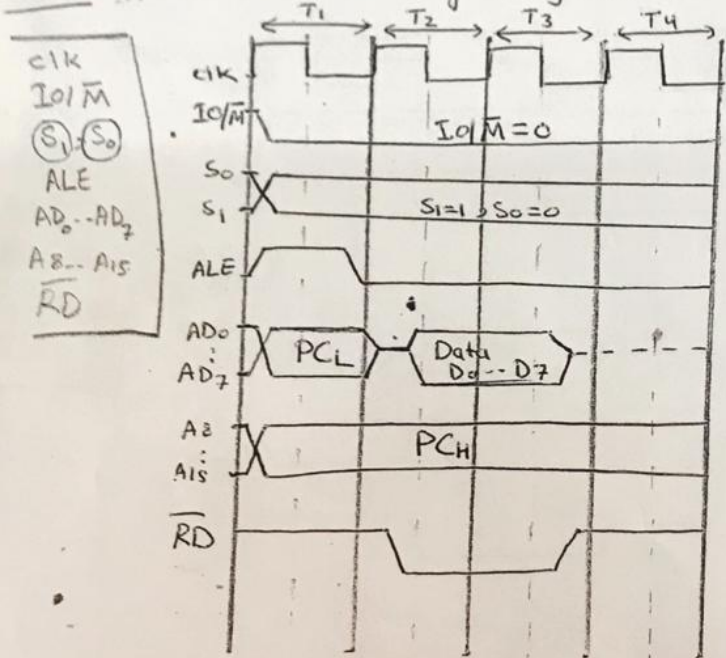 T1 T2 T3 T4
clk
IO/M̅
S1, S0
ALE
AD0..AD7
A8..A15
R̅D̅
clk
IO/M̅
IO/M̅=0
S0
S1
S1=1, S0=0
ALE
AD0
:
AD7
PCL
Data
D0--D7
A8
:
A15
PCH
R̅D̅